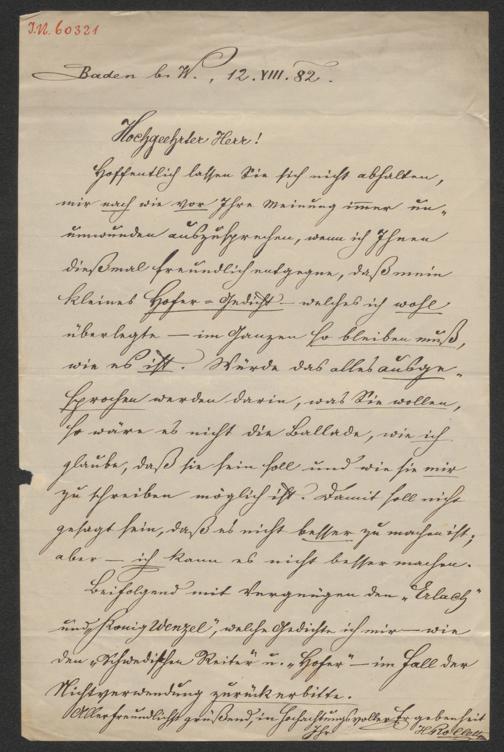 I.N. 60321
Baden b. W., 12. VIII. 82.
Hochgeehrter Herr!
Hoffentlich lassen Sie sich nicht abhalten,
mir nach wie vor Ihre Meinung immer un-
umwunden auszusprechen, wenn ich Ihnen
dießmal freundlich entgegne, daß mein
kleines Hofer-Gedicht – welches ich wohl
überlegte – im Ganzen so bleiben muß,
wie es ist. Würde das alles ausge-
sprochen werden darin, was Sie wollen,
so wäre es nicht die Ballade, wie ich
glaube, daß sie sein soll und wie sie mir
zu schreiben möglich ist. Damit soll nicht
gesagt sein, daß es nicht besser zu machen ist;
aber – ich kann es nicht besser machen.
Beifolgend mit Vergnügen den „Erlach"
und „König Wenzel", welche Gedichte ich mir – wie
den „Schwedischen Reiter" u. „Hofer" – im Fall der
Nichtverwendung zurückerbitte.
Allerfreundlichst grüßend, in hochachtungsvoller Ergebenheit
Ihr HRollett